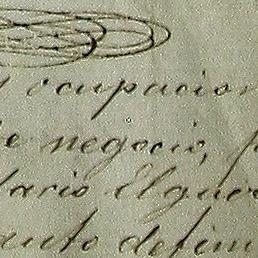 y ocupacion
de negocio, p
lario Elguer
anto defini